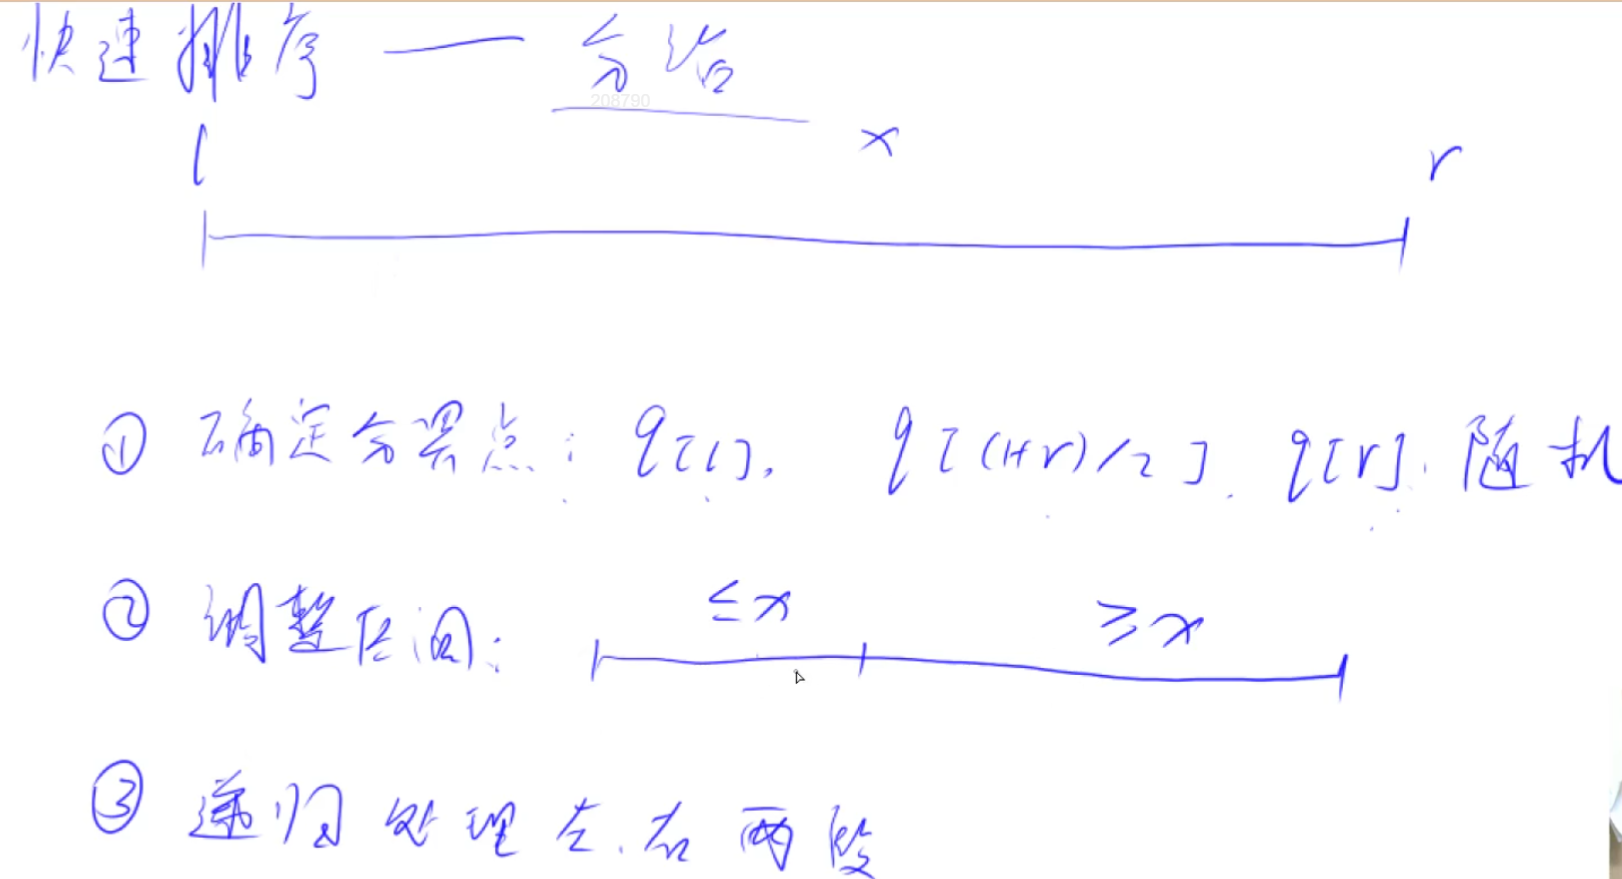 快速排序 —— 分治
208790
l x r
① 确定分界点: q[l], q[(l+r)/2], q[r], 随机
② 调整区间: ≤x ≥x
③ 递归 处理 左、右 两段